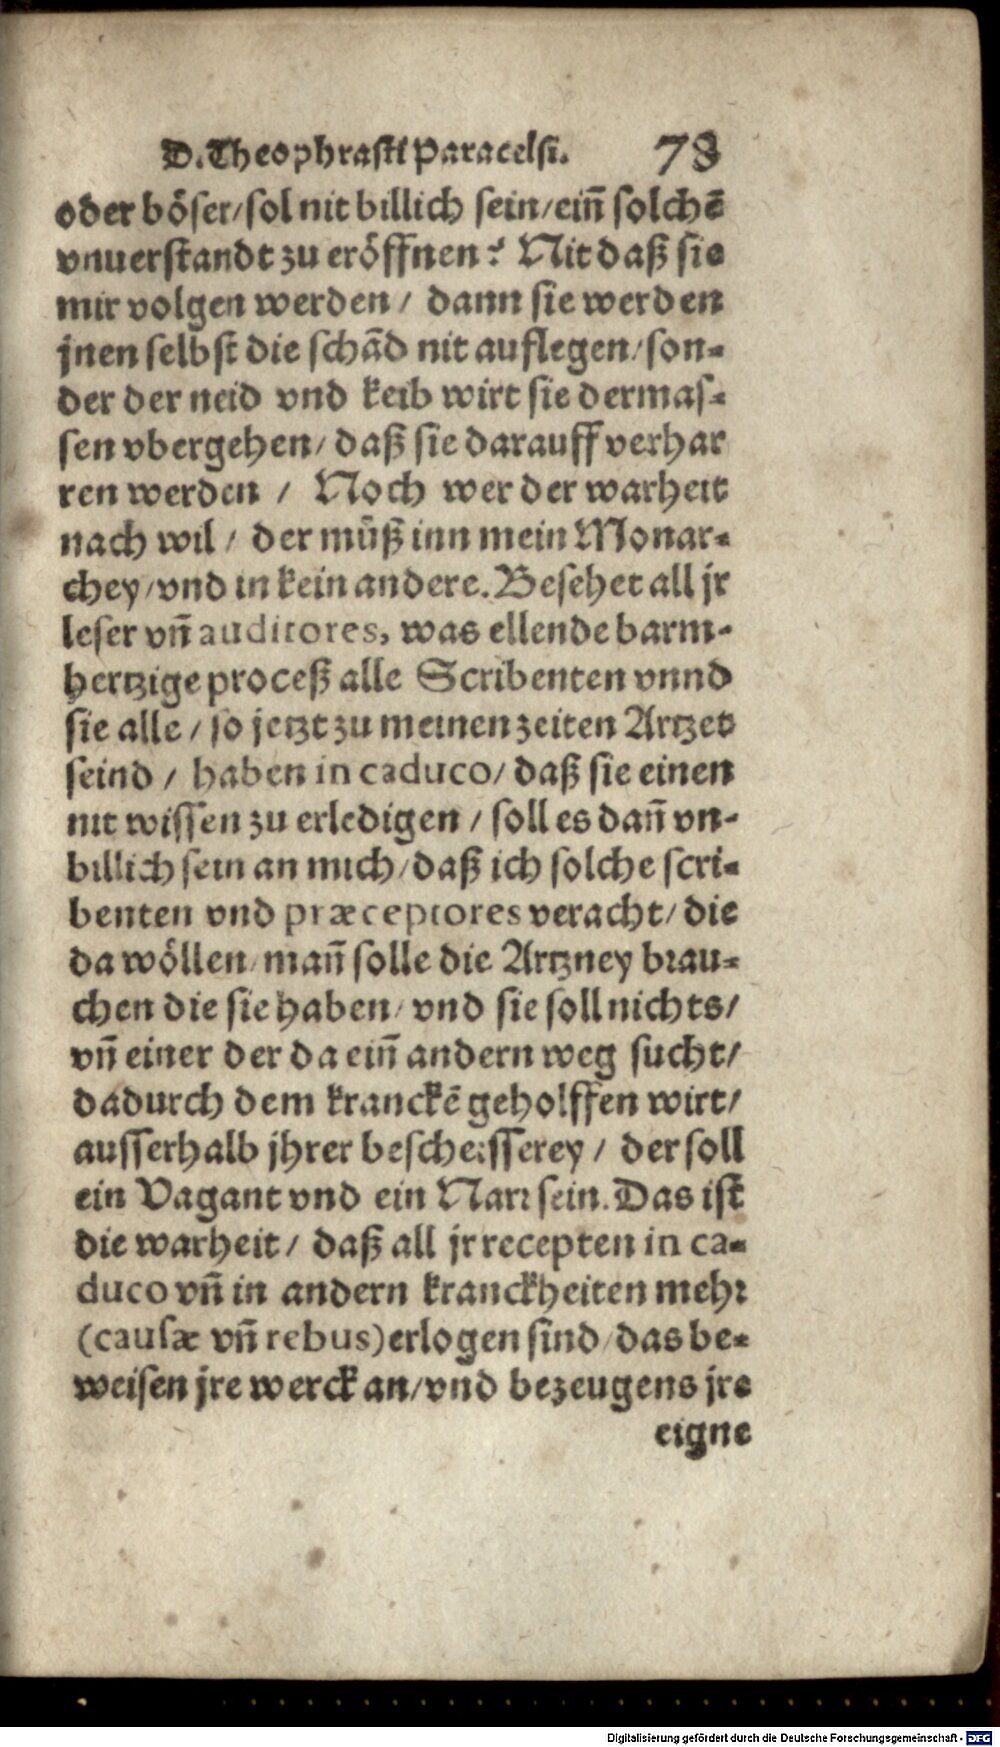 D. Theophrasti Paracelsi. 78
oder böser/sol nit billich sein/eiñ solchẽ
vnuerstandt zu eröffnen? Nit daß sie
mir volgen werden / dann sie werden
jnen selbst die schãd nit auflegen/son-
der der neid vnd keib wirt sie dermas-
sen vbergehen/ daß sie darauff verhar
ren werden / Noch wer der warheit
nach wil / der můß inn mein Monar-
chey/vnd in kein andere. Besehet all jr
leser vñ auditores, was ellende barm-
hertzige proceß alle Scribenten vnnd
sie alle / so jetzt zu meinen zeiten Artzet
seind / haben in caduco/ daß sie einen
nit wissen zu erledigen / soll es dañ vn-
billich sein an mich/daß ich solche scri-
benten vnd præceptores veracht/ die
da wöllen/mañ solle die Artzney brau-
chen die sie haben/ vnd sie soll nichts/
vñ einer der da eiñ andern weg sucht/
dadurch dem kranckẽ geholffen wirt/
ausserhalb jhrer bescheisserey / der soll
ein Vagant vnd ein Narr sein. Das ist
die warheit / daß all jr recepten in ca-
duco vñ in andern kranckheiten mehr
(causæ vñ rebus) erlogen sind/das be-
weisen jre werck an/vnd bezeugens jre
eigne
Digitalisierung gefördert durch die Deutsche Forschungsgemeinschaft - DFG